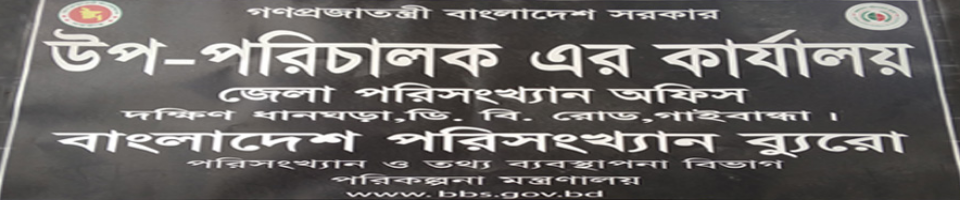 গণপ্রজাতন্ত্রী বাংলাদেশ সরকার
উপ-পরিচালক এর কার্যালয়
জেলা পরিসংখ্যান অফিস
দক্ষিণ ধানঘড়া,ডি. বি. রোড,গাইবান্ধা ।
বাংলাদেশ পরিসংখ্যান ব্যুরো
পরিসংখ্যান ও তথ্য ব্যবস্থাপনা বিভাগ
পরিকল্পনা মন্ত্রণালয়
www.bbs.gov.bd